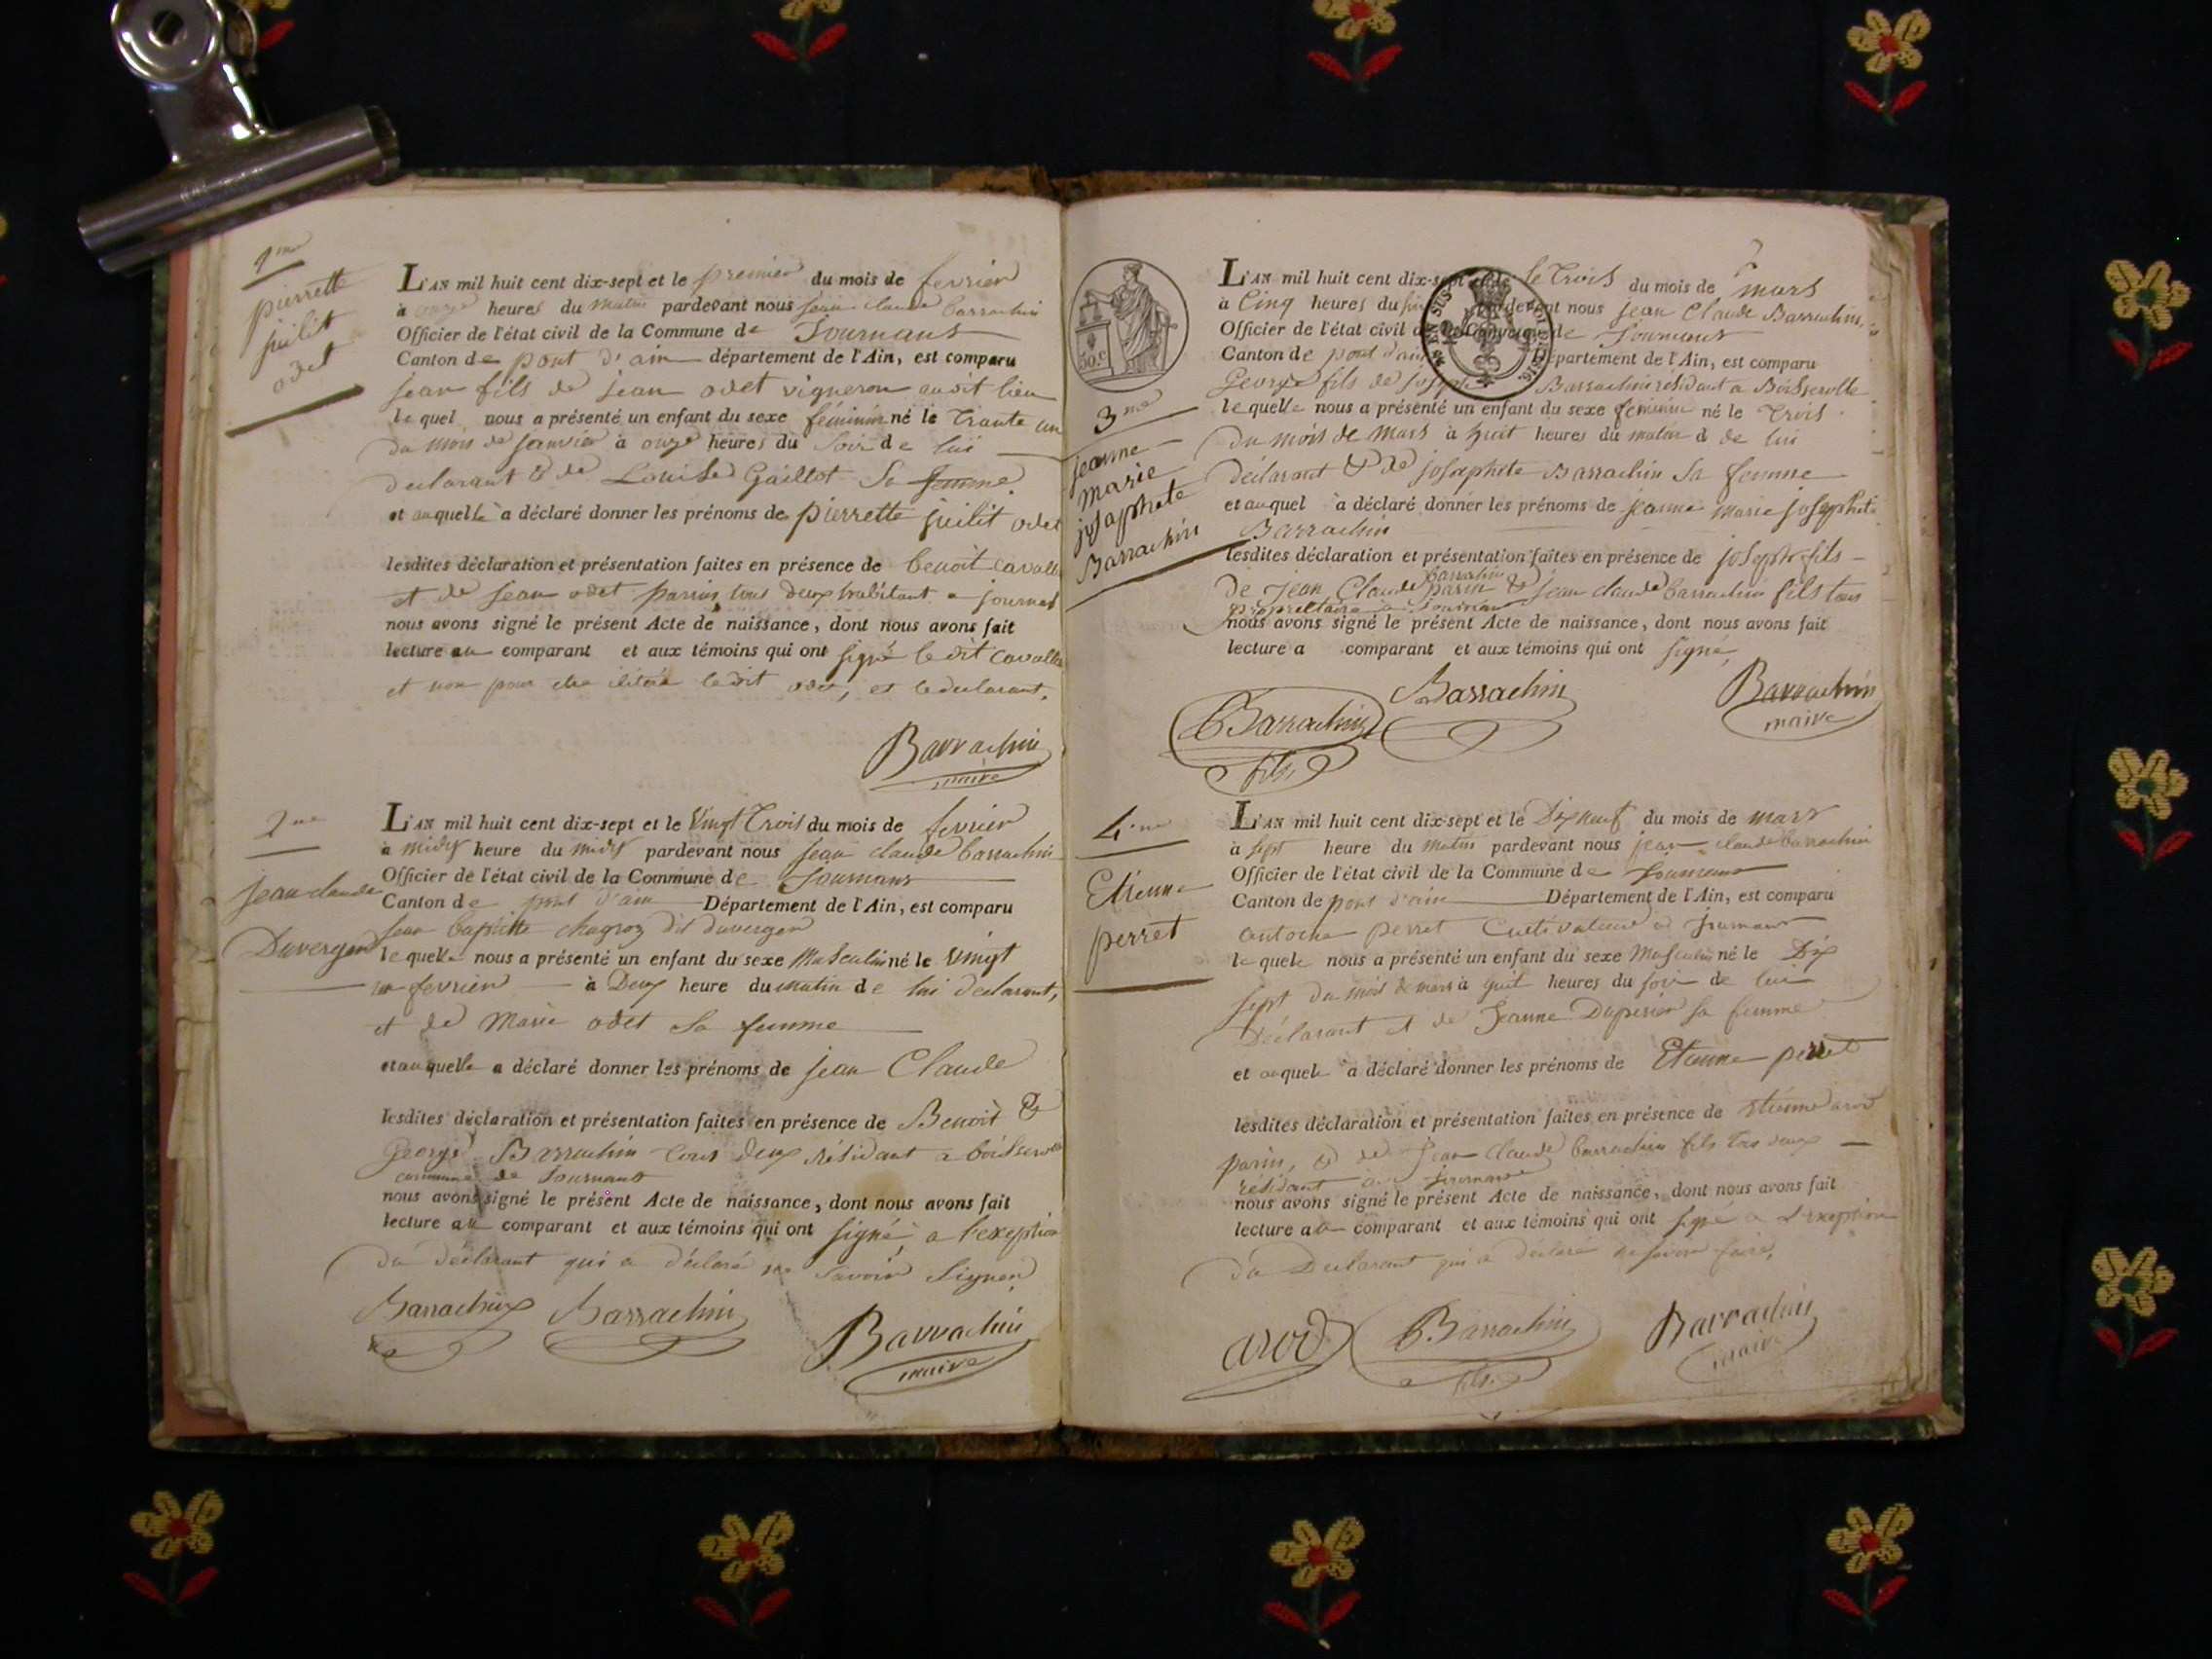 1me
pierrette
juilit
odet
L'AN mil huit cent dix-sept et le premier du mois de fevrier
à onze heures du matin pardevant nous jean claude barrachin
Officier de l'état civil de la Commune de Journans
Canton de pont d'ain département de l'Ain, est comparu
jean fils de jean odet vigneron audit lieu
lequel nous a présenté un enfant du sexe féminin né le trante un
du mois de janvier à onze heures du soir de lui
declarant & de Louise Gaillot Sa femme.
et auquelle a déclaré donner les prénoms de pierrette juilit odet
lesdites déclaration et présentation faites en présence de benoit cavall
et de jean odet parrin tous deux habitant a journas
nous avons signé le présent Acte de naissance, dont nous avons fait
lecture au comparant et aux témoins qui ont signé ledit cavall
et non pour etre iliteré ledit odet, et le declarant.
Barrachin
maire
2me
jean claude
Duvergen
L'AN mil huit cent dix-sept et le vingt trois du mois de fevrier
à midy heure du midy pardevant nous jean claude barrachin
Officier de l'état civil de la Commune de Journans
Canton de pont d'ain Département de l'Ain, est comparu
jean baptiste chagroz dit duvergen
lequelle nous a présenté un enfant du sexe Masculin né le vingt
fevrier à Deux heure du matin de lui declarant,
et de Marie odet Sa femme
et auquelle a déclaré donner les prénoms de jean Claude
lesdites déclaration et présentation faites en présence de Benoit &
George Barrachin tous deux résidant a boisserolle
commune de Journans
nous avons signé le présent Acte de naissance, dont nous avons fait
lecture au comparant et aux témoins qui ont signé, a l'exeption
du déclarant qui a déclaré ne savoir signer
Barrachin Barrachin
Barrachin
maire
50 c.
EN SUS
1816
3me
jeanne
marie
josaphete
Barrachin
L'AN mil huit cent dix-sept et le le trois du mois de mars
à Cinq heures du soir pardevant nous jean Claude Barrachin
Officier de l'état civil de la Commune de Journans
Canton de pont d'ain Département de l'Ain, est comparu
George fils de joseph Barrachin résidant a Boisserolle
lequelle nous a présenté un enfant du sexe feminin né le trois
du mois de mars à huit heures du matin d de lui
déclarant & de josaphete Barrachin Sa femme
et auquel a déclaré donner les prénoms de jeanne marie josaphete
Barrachin
lesdites déclaration et présentation faites en présence de joseph fils
barrachin
de jean Claude parin & jean claude barrachin fils tous
propriettaire a Journans
nous avons signé le présent Acte de naissance, dont nous avons fait
lecture a comparant et aux témoins qui ont signé,
Barrachin
fils
Barrachin
Barrachin
maire
4me
Etienne
perret
L'AN mil huit cent dix-sept et le Dix neuf du mois de mars
à sept heure du matin pardevant nous jean claude barrachin
Officier de l'état civil de la Commune de Journans
Canton de pont d'ain Département de l'Ain, est comparu
antoine perret Cultivateur a Journans
lequele nous a présenté un enfant du sexe Masculin né le Dix
sept du mois de mars à huit heures du soir de lui
Déclarant et de Jeanne Duperier sa femme
et auquele a déclaré donner les prénoms de Etienne perret
lesdites déclaration et présentation faites en présence de etienne arod
parin, & de Jean Claude barrachin fils tous deux
résidant au Journans
nous avons signé le présent Acte de naissance, dont nous avons fait
lecture au comparant et aux témoins qui ont signé a l'exeption
du Declarant qui a declaré ne savoir faire,
arod
Barrachin
fils
Barrachin
maire